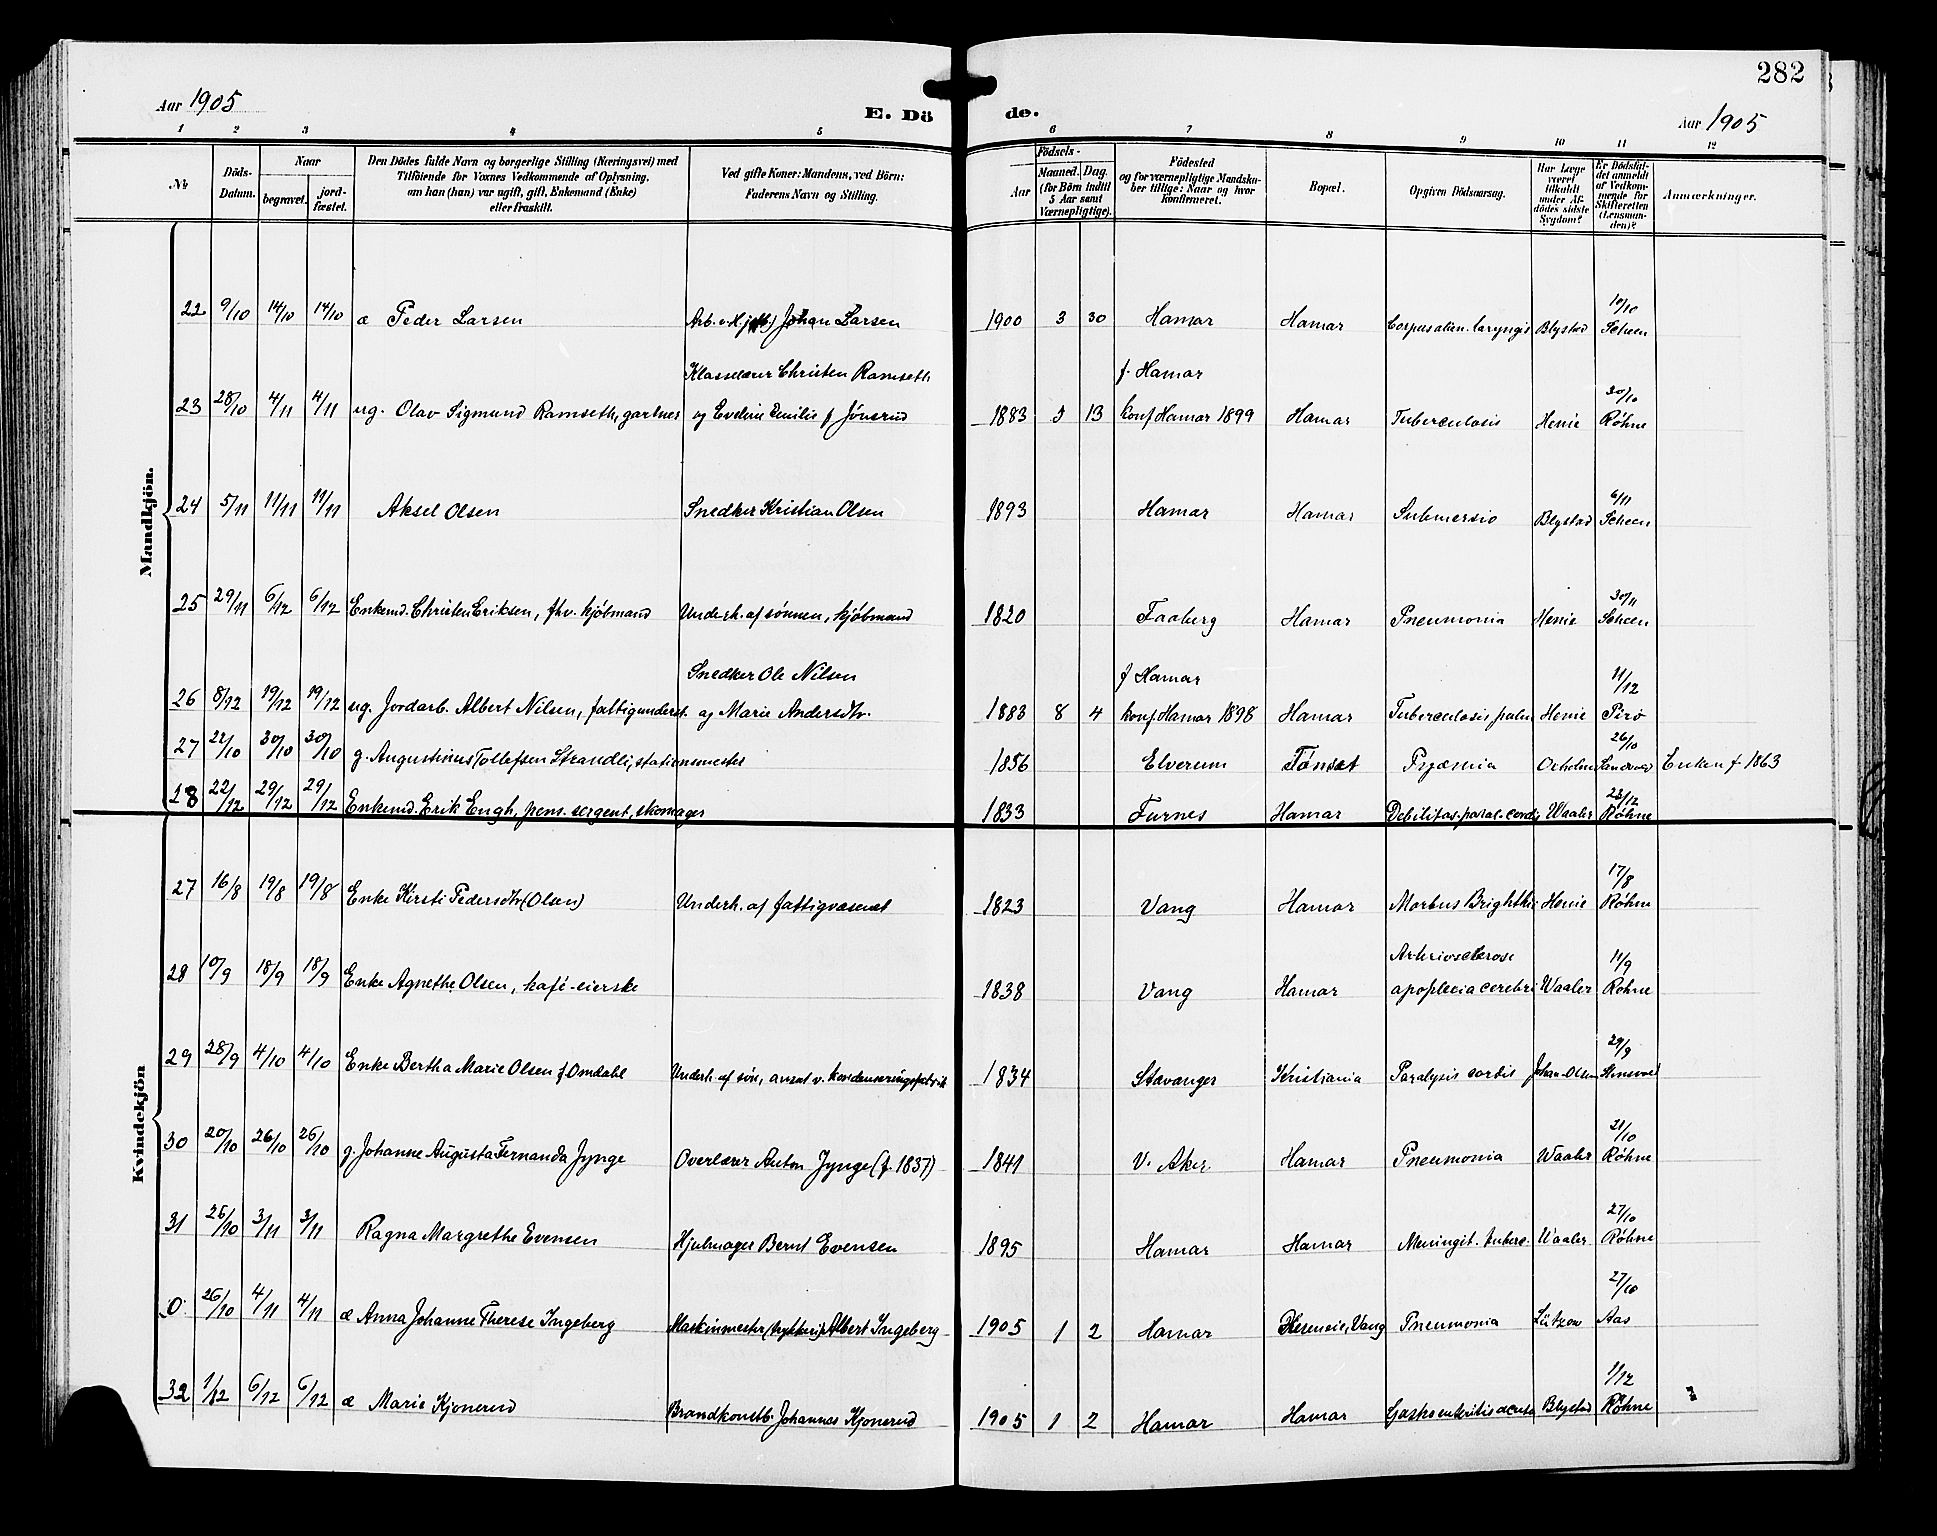 282
Aar 1905
E. Dö
de.
Aar 1905
1 2 3 4 5 6 7 8 9 10 11 12
No
Döds-Datum.
Naar
begravet.
jordfæstet.
Den Dödes fulde Navn og borgerlige Stilling (Næringsvei) med
Tilföiende for Voxnes Vedkommende af Oplysning,
om han (hun) var ugift, gift, Enkemand (Enke)
eller fraskilt.
Ved gifte Koner: Mandens, ved Börn:
Faderens Navn og Stilling.
Födsels-
Aar
Maaned. Dag.
(for Börn indtil
5 Aar samt
Værnepligtige).
Födested
og for værnepligtige Mandsku-
ber tillige: Naar og hvor
konfirmeret.
Bopæl.
Opgiven Dödsaarsag.
Har Læge
været
tilkaldt
under Af-
dödes sidste
Sygdom?
Er Dödsfal-
det anmeldt
af Vedkom-
mende for
Skifteretten
(Lensman-
den)?
Anmærkninger.
Mandkjön.
22 9/10 14/10 14/10 æ Peder Larsen Johan Larsen 1900 3 30 Hamar Hamar laryngis Blystad 10/10 Scheen
Klasselærer Christen Ramseth f. Hamar
23 28/10 4/11 4/11 ug. Olav Sigmund Ramseth, gartner og Eveline Emilie f Jönsrud 1883 13 konf Hamar 1899 Hamar Tuberculosis Henie 30/10 Röhne
24 5/11 11/11 11/11 Aksel Olsen Snedker Kristian Olsen 1893 Hamar Hamar Submersio Blystad 6/11 Scheen
25 29/11 6/12 6/12 Enkemd. Christen Eriksen, fhv. kjöbmand Underh. af sönnen, kjöbmand 1820 Faaberg Hamar Pneumonia Henie 30/11 Scheen
Snedker Ole Nilsen f Hamar
26 8/12 19/12 19/12 ug. Jordarb. Albert Nilsen, fattigunderst. og Marie Andersdtr. 1883 8 4 konf Hamar 1898 Hamar Tuberculosis pulm Henie 11/12 Pirö
27 22/10 30/10 30/10 g. Augustinus Tollefsen Strandli, stationsmester 1856 Elverum Tönset Pyæmia 26/10 Enken f 1863
28 22/12 29/12 29/12 Enkemd. Erik Engh, pens. sergent, skomager 1833 Furnes Hamar Debilitas. paral. cordis Waaler 23/12 Röhne
Kvindekjön
27 16/8 19/8 19/8 Enke Kirsti Pedersdtr (Olsen) Underh. af fattigvæsenet 1823 Vang Hamar Morbus Brightii Henie 17/8 Röhne
Arteriosclerose
28 10/9 18/9 18/9 Enke Agnethe Olsen, kafé-eierske 1838 Vang Hamar apoplexia cerebri Waaler 11/9 Röhne
29 28/9 4/10 4/10 Enke Bertha Marie Olsen f Omdahl Underh. af sön, ansat v. kondenseringsfabrik 1834 Stavanger Kristiania Paralysis cordis Johan Olsen 29/9
30 20/10 26/10 26/10 g. Johanne Augusta Fernanda Jynge Overlærer Anton Jynge (f. 1837) 1841 V. Aker Hamar Pneumonia Waaler 21/10 Röhne
31 26/10 3/11 3/11 Ragna Margrethe Evensen Hjulmager Bernt Evensen 1895 Hamar Hamar Meningit. tuberc. Waaler 27/10 Röhne
0 26/10 4/11 4/11 æ Anna Johanne Therese Ingeberg Maskinmester Albert Ingeberg 1905 1 2 Hamar Vang Pneumonia Lützow 27/10 Aas
32 1/12 6/12 6/12 æ Marie Kjonerud Brandkonstb. Johannes Kjonerud 1905 1 2 Hamar Hamar Gastroenteritis acuta Blystad 1/12 Röhne